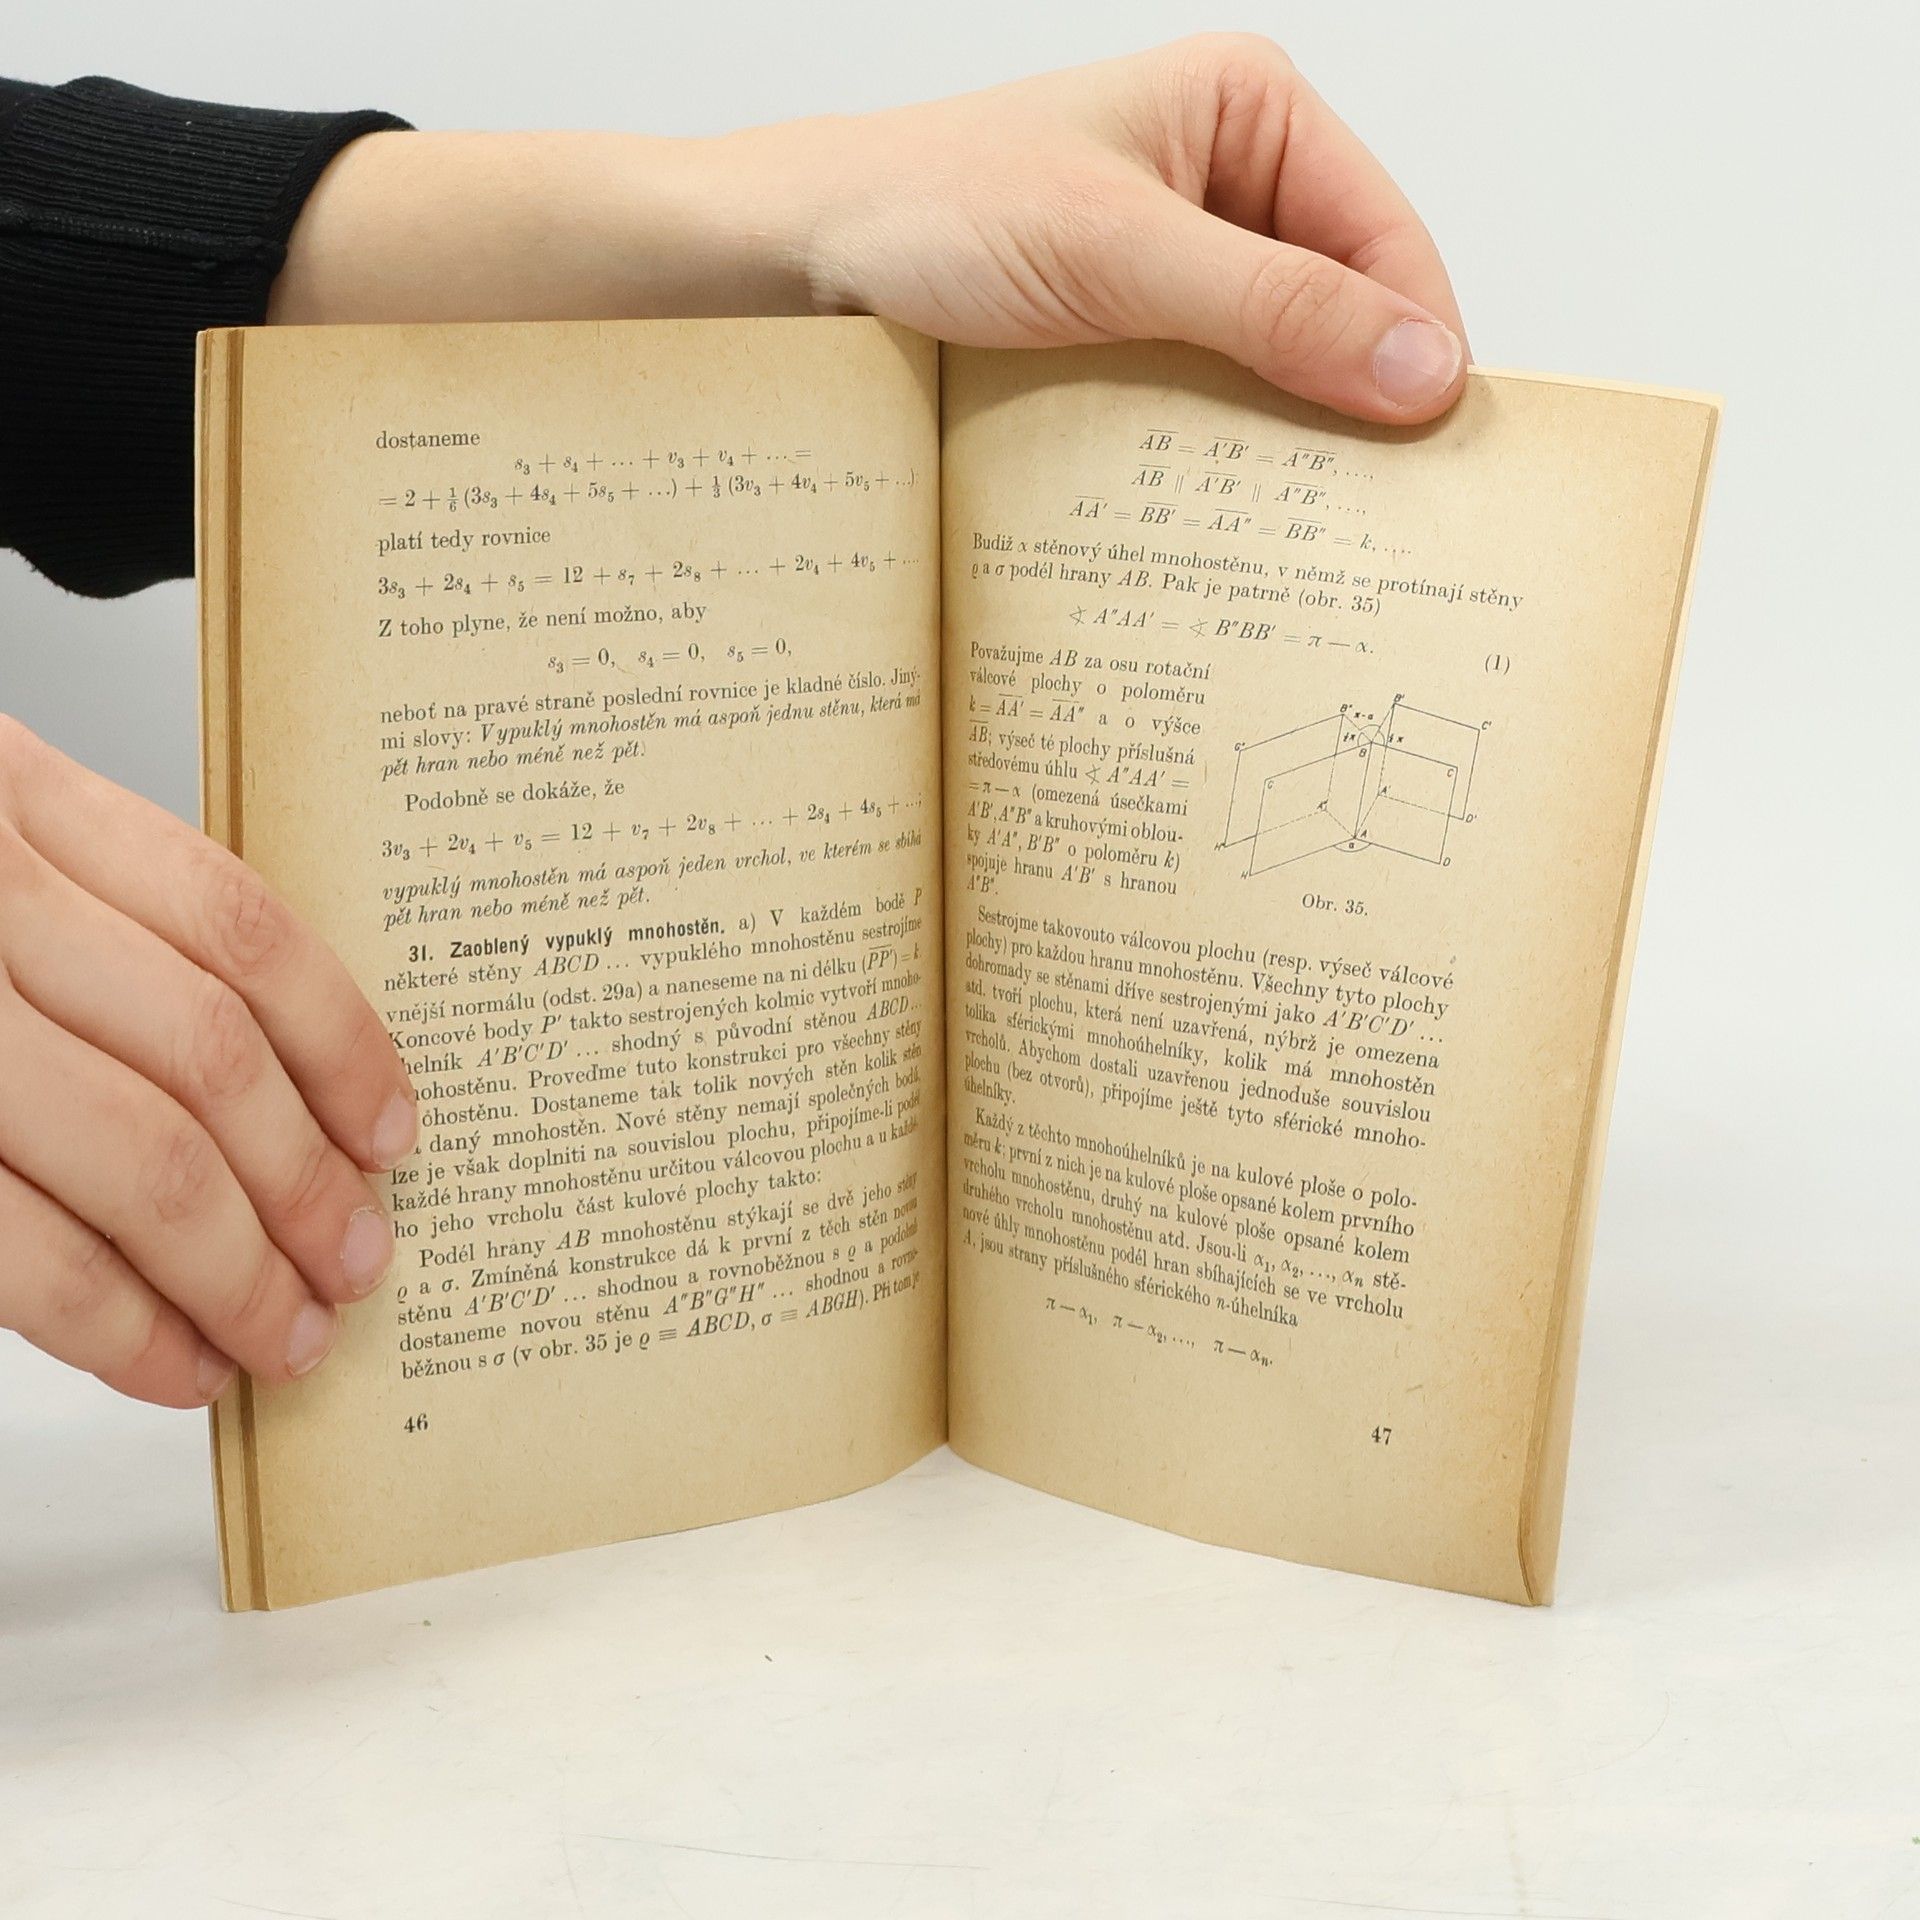 dostaneme
s₃ + s₄ + … + v₃ + v₄ + … =
= 2 + ⅙ (3s₃ + 4s₄ + 5s₅ + …) + ⅓ (3v₃ + 4v₄ + 5v₅ + …);
platí tedy rovnice
3s₃ + 2s₄ + s₅ = 12 + s₇ + 2s₈ + … + 2v₄ + 4v₅ + …
Z toho plyne, že není možno, aby
s₃ = 0, s₄ = 0, s₅ = 0,
neboť na pravé straně poslední rovnice je kladné číslo. Jiný-
mi slovy: Vypuklý mnohostěn má aspoň jednu stěnu, která má
pět hran nebo méně než pět.
Podobně se dokáže, že
3v₃ + 2v₄ + v₅ = 12 + v₇ + 2v₈ + … + 2s₄ + 4s₅ + …;
vypuklý mnohostěn má aspoň jeden vrchol, ve kterém se sbíhá
pět hran nebo méně než pět.
31. Zaoblený vypuklý mnohostěn. a) V každém bodě P
některé stěny ABCD … vypuklého mnohostěnu sestrojíme
vnější normálu (odst. 29a) a naneseme na ni délku (P̅P̅′) = k.
Koncové body P′ takto sestrojených kolmic vytvoří mnoho-
helník A′B′C′D′ … shodný s původní stěnou ABCD…
nohostěnu. Proveďme tuto konstrukci pro všechny stěny
ohostěnu. Dostaneme tak tolik nových stěn kolik stěn
daný mnohostěn. Nové stěny nemají společných bodů,
lze je však doplniti na souvislou plochu, připojíme-li podél
každé hrany mnohostěnu určitou válcovou plochu a u každé-
ho jeho vrcholu část kulové plochy takto:
Podél hrany AB mnohostěnu stýkají se dvě jeho stěny
ϱ a σ. Zmíněná konstrukce dá k první z těch stěn novou
stěnu A′B′C′D′ … shodnou a rovnoběžnou s ϱ a podobně
dostaneme novou stěnu A″B″G″H″ … shodnou a rovno-
běžnou s σ (v obr. 35 je ϱ ≡ ABCD, σ ≡ ABGH). Při tom je
46
A̅B̅ = A̅′B̅′ = A̅″B̅″, …,
A̅B̅ ∥ A̅′B̅′ ∥ A̅″B̅″, …,
A̅A̅′ = B̅B̅′ = A̅A̅″ = B̅B̅″ = k, …
Budiž α stěnový úhel mnohostěnu, v němž se protínají stěny
ϱ a σ podél hrany AB. Pak je patrně (obr. 35)
∢ A″AA′ = ∢ B″BB′ = π — α. (1)
Považujme AB za osu rotační
válcové plochy o poloměru
k = A̅A̅′ = A̅A̅″ a o výšce
A̅B̅; výseč té plochy příslušná
středovému úhlu ∢ A″AA′ =
= π — α (omezená úsečkami
A′B′, A″B″ a kruhovými oblou-
ky A′A″, B′B″ o poloměru k)
spojuje hranu A′B′ s hranou
A″B″.
Obr. 35.
Sestrojme takovouto válcovou plochu (resp. výseč válcové
plochy) pro každou hranu mnohostěnu. Všechny tyto plochy
dohromady se stěnami dříve sestrojenými jako A′B′C′D′ …
atd. tvoří plochu, která není uzavřená, nýbrž je omezena
tolika sférickými mnohoúhelníky, kolik má mnohostěn
vrcholů. Abychom dostali uzavřenou jednoduše souvislou
plochu (bez otvorů), připojíme ještě tyto sférické mnoho-
úhelníky.
Každý z těchto mnohoúhelníků je na kulové ploše o polo-
měru k; první z nich je na kulové ploše opsané kolem prvního
vrcholu mnohostěnu, druhý na kulové ploše opsané kolem
druhého vrcholu mnohostěnu atd. Jsou-li α₁, α₂, …, αₙ stě-
nové úhly mnohostěnu podél hran sbíhajících se ve vrcholu
A, jsou strany příslušného sférického n-úhelníka
π — α₁, π — α₂, …, π — αₙ.
47